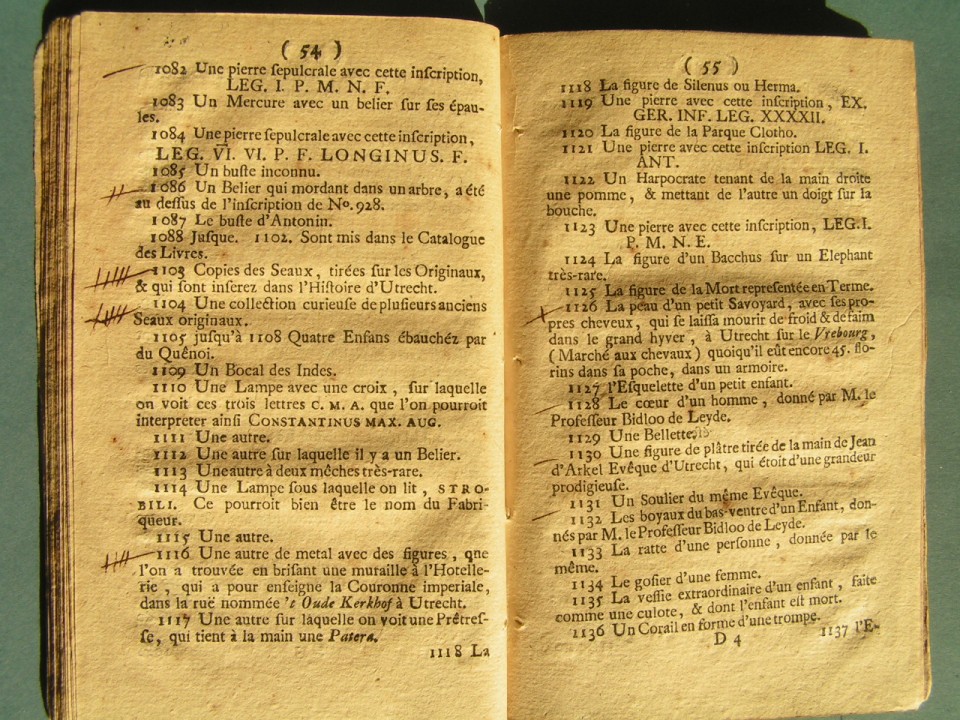 ( 54 )
1082 Une pierre ſepulcrale avec cette inſcription,
LEG. I. P. M. N. F.
1083 Un Mercure avec un belier ſur ſes épau-
les.
1084 Une pierre ſepulcrale avec cette inſcription,
LEG. VI. VI. P. F. LONGINUS. F.
1085 Un buſte inconnu.
1086 Un Belier qui mordant dans un arbre, a été
au deſſus de l'inſcription de No. 928.
1087 Le buſte d'Antonin.
1088 Juſque. 1102. Sont mis dans le Catalogue
des Livres.
1103 Copies des Seaux, tirées ſur les Originaux,
& qui ſont inſerez dans l'Hiſtoire d'Utrecht.
1104 Une collection curieuſe de pluſieurs anciens
Seaux originaux.
1105 juſqu'à 1108 Quatre Enfans ébauchéz par
du Quênoi.
1109 Un Bocal des Indes.
1110 Une Lampe avec une croix, ſur laquelle
on voit ces trois lettres C. M. A. que l'on pourroit
interpreter ainſi CONSTANTINUS MAX. AUG.
1111 Une autre.
1112 Une autre ſur laquelle il y a un Belier.
1113 Une autre à deux mêches très-rare.
1114 Une Lampe ſous laquelle on lit, STRO-
BILI. Ce pourroit bien être le nom du Fabri-
queur.
1115 Une autre.
1116 Une autre de metal avec des figures, que
l'on a trouvée en briſant une muraille à l'Hotelle-
rie, qui a pour enſeigne la Couronne imperiale,
dans la ruë nommée 't Oude Kerkhof à Utrecht.
1117 Une autre ſur laquelle on voit une Prêtreſ-
ſe, qui tient à la main une Patera.
1118 La
( 55 )
1118 La figure de Silenus ou Herma.
1119 Une pierre avec cette inſcription, EX.
GER. INF. LEG. XXXXII.
1120 La figure de la Parque Clotho.
1121 Une pierre avec cette inſcription LEG. I.
ANT.
1122 Un Harpocrate tenant de la main droite
une pomme, & mettant de l'autre un doigt ſur la
bouche.
1123 Une pierre avec cette inſcription, LEG. I.
P. M. N. E.
1124 La figure d'un Bacchus ſur un Elephant
très-rare.
1125 La figure de la Mort repreſentée en Terme.
1126 La peau d'un petit Savoyard, avec ſes pro-
pres cheveux, qui ſe laiſſa mourir de froid & de faim
dans le grand hyver, à Utrecht ſur le Vrebourg,
(Marché aux chevaux) quoiqu'il eût encore 45. flo-
rins dans ſa poche, dans un armoire.
1127 l'Eſquelette d'un petit enfant.
1128 Le cœur d'un homme, donné par M. le
Profeſſeur Bidloo de Leyde.
1129 Une Bellette.
1130 Une figure de plâtre tirée de la main de Jean
d'Arkel Evêque d'Utrecht, qui étoit d'une grandeur
prodigieuſe.
1131 Un Soulier du même Evêque.
1132 Les boyaux du bas-ventre d'un Enfant, don-
nés par M. le Profeſſeur Bidloo de Leyde.
1133 La ratte d'une perſonne, donnée par le
même.
1134 Le goſier d'une femme.
1135 La veſſie extraordinaire d'un enfant, faite
comme une culote, & dont l'enfant eſt mort.
1136 Un Corail en forme d'une trompe.
D 4
1137 l'E-